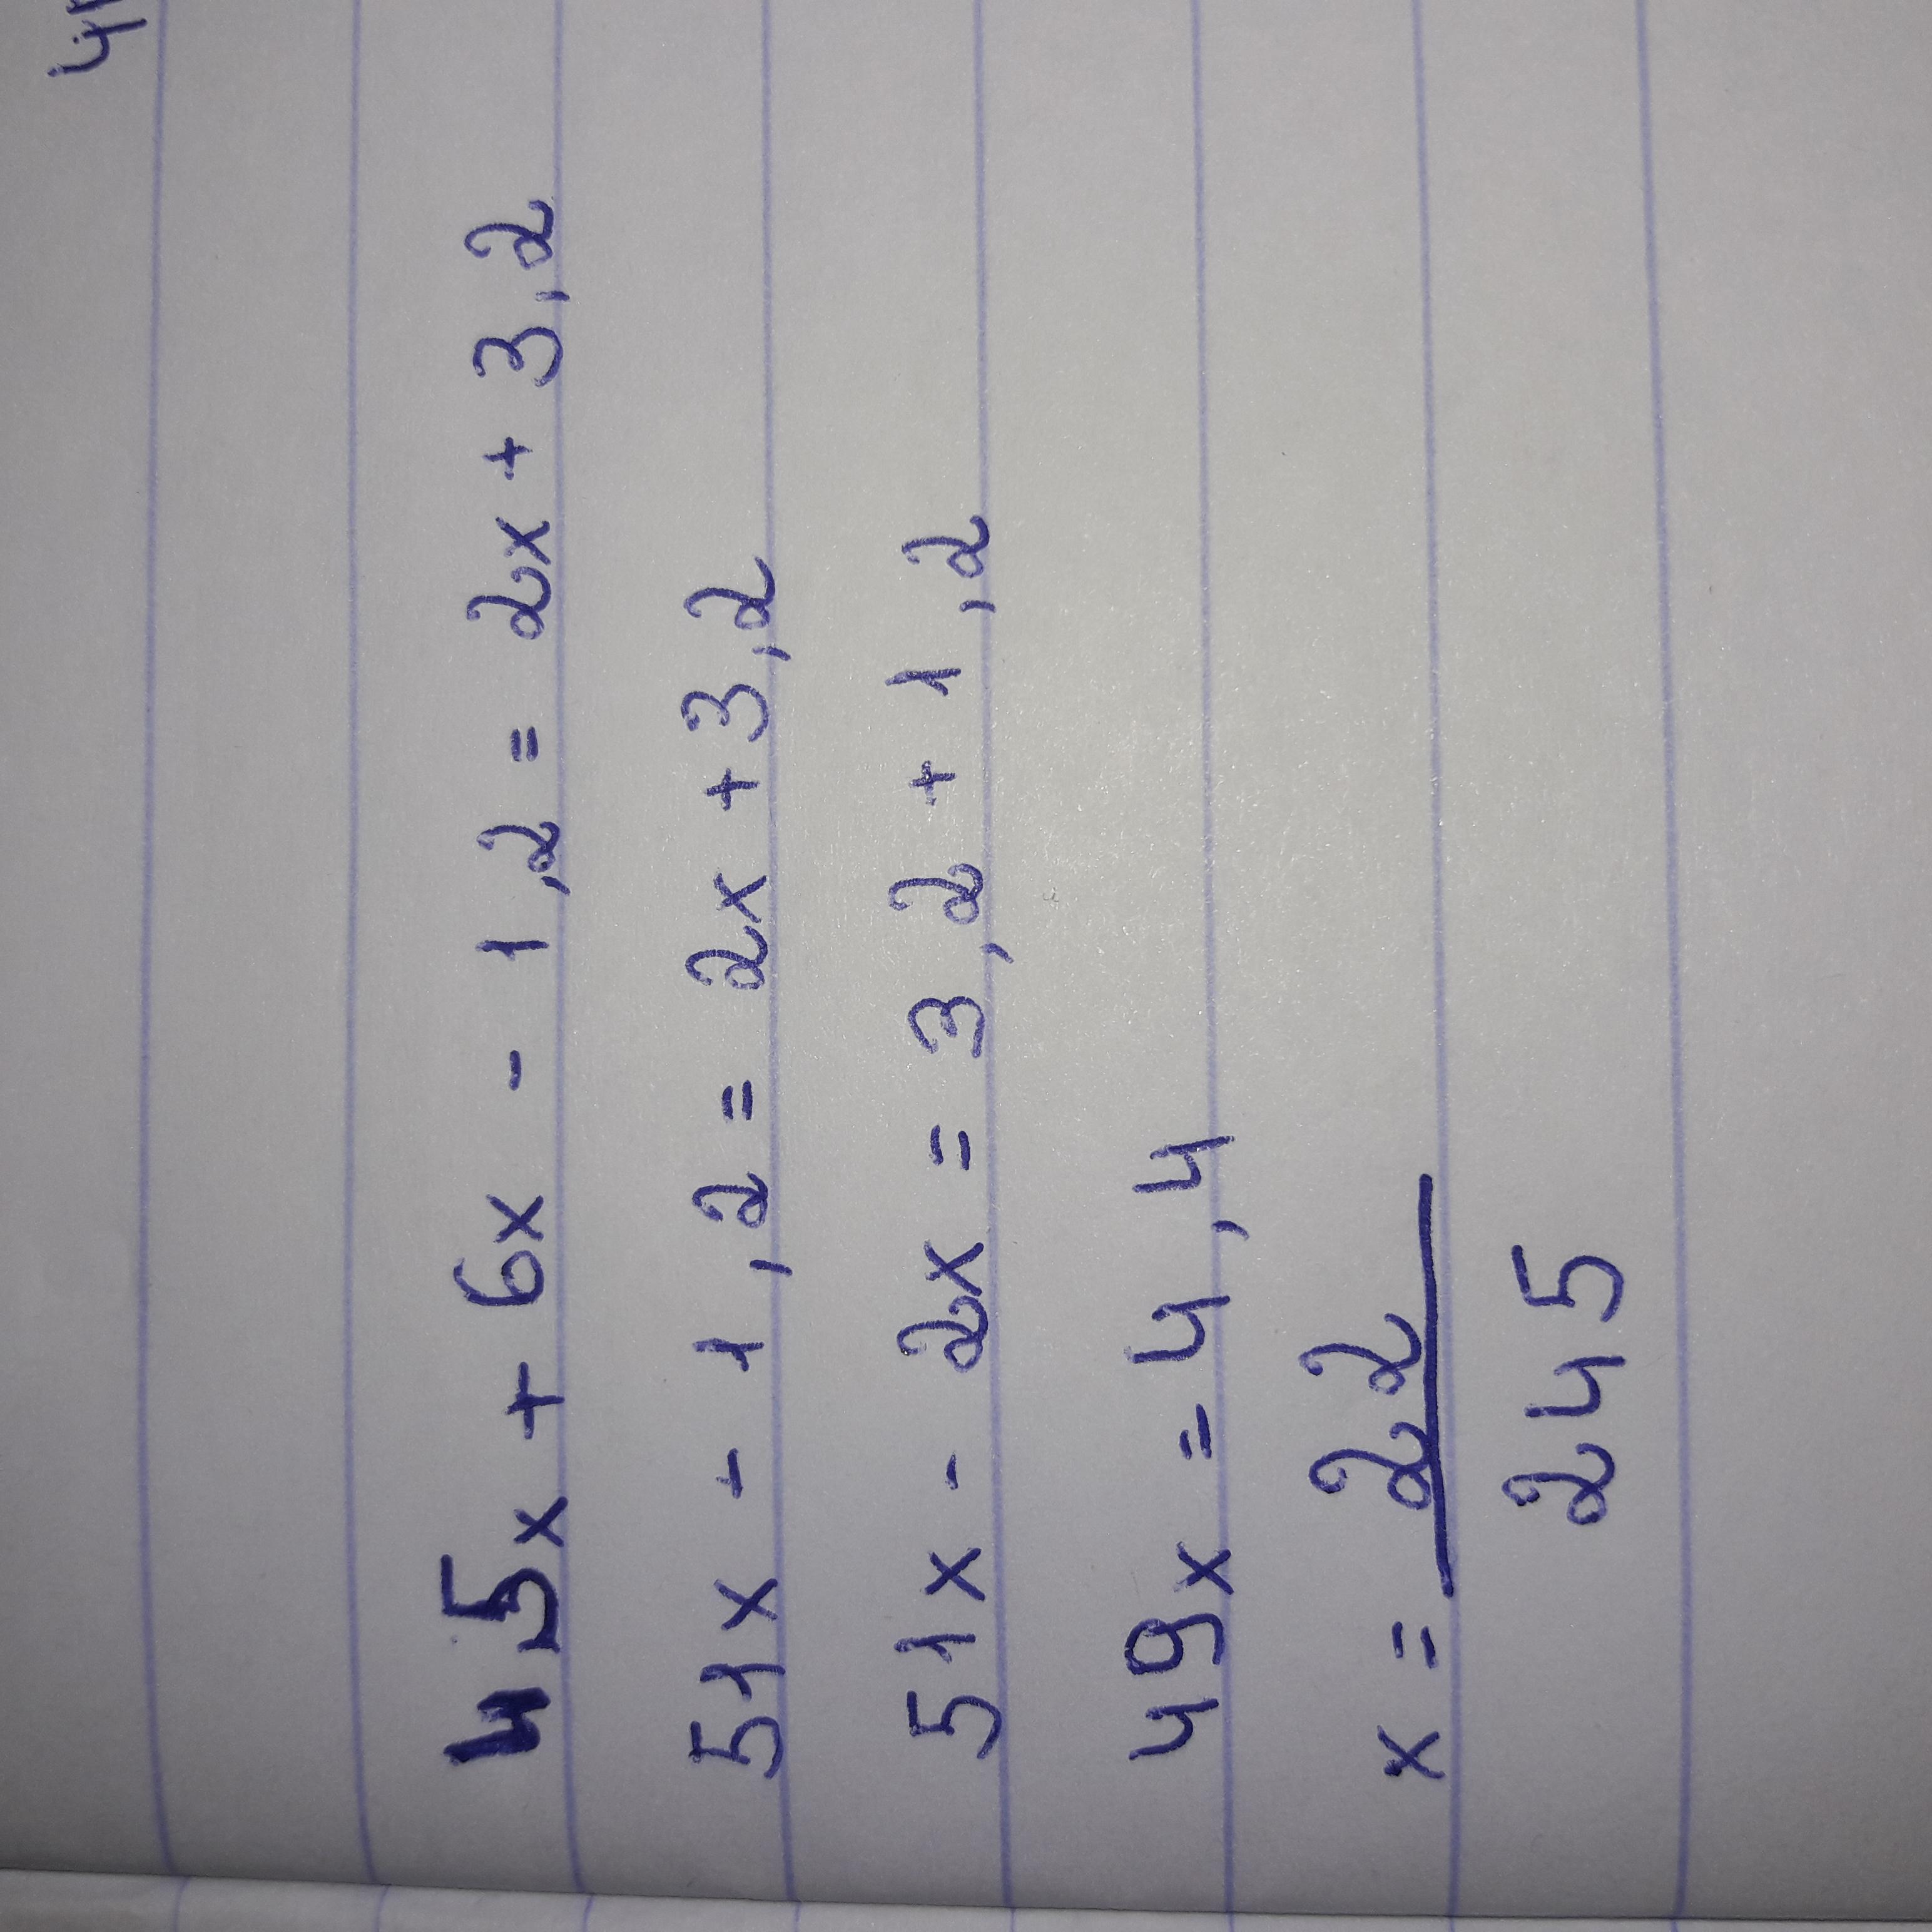 45x + 6x - 1,2 = 2x + 3,2
51x - 1,2 = 2x + 3,2
51x - 2x = 3,2 + 1,2
49x = 4,4
x = 22
245